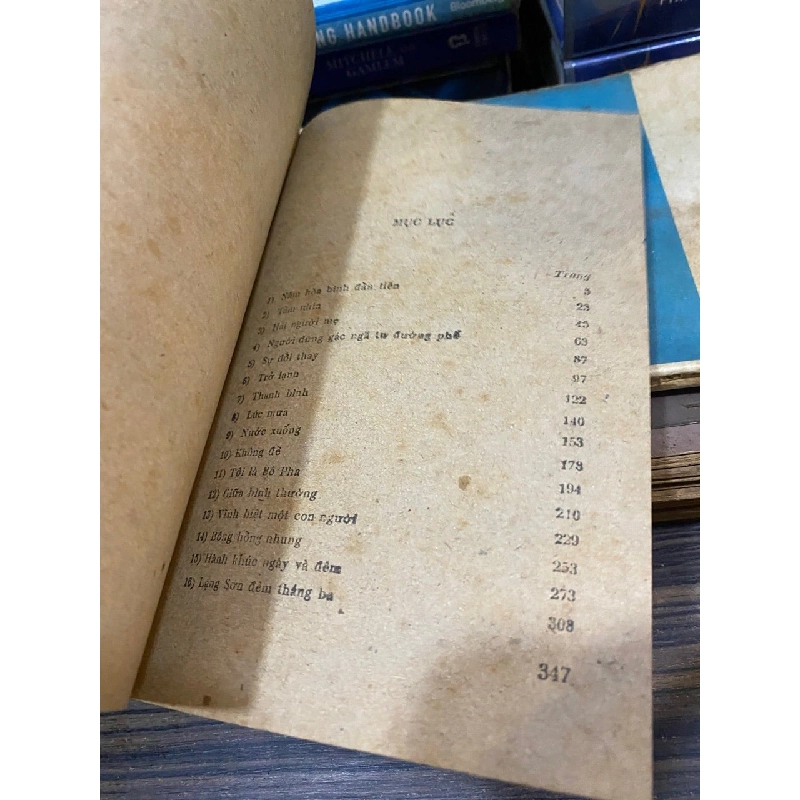 HANDBOOK
Bloomberg
MỤC LỤC
Trang
1) Năm hòa bình đầu tiên 5
2) Tầm nhìn 23
3) Hai người mẹ 43
4) Người đứng gác ngã tư đường phố 63
5) Sự đổi thay 87
6) Trở lạnh 97
7) Thanh bình 122
8) Lúc mưa 140
9) Nước xuống 153
10) Không đề 178
11) Tôi là Bô Pha 194
12) Giữa bình thường 210
13) Vĩnh biệt một con người 229
14) Bông hồng nhung 253
15) Hành khúc ngày và đêm 273
16) Lạng Sơn đêm tháng ba 308
347